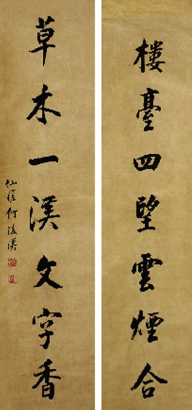 樓臺四望雲煙合
草木一溪文字香
仙槎何溪漢